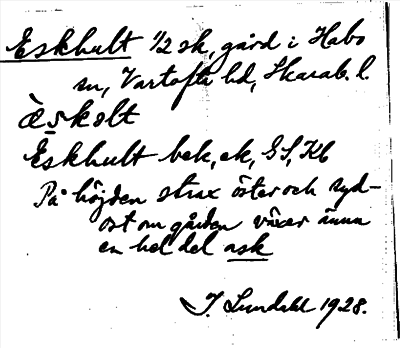 Eskhult 1/2 sk, gård i Habo
sn, Vartofta hd, Skarab. l.
æ̀skølt
Eskhult bek, ek, GS, Kb
På höjden strax öster och syd-
ost om gården växer ännu
en hel del ask
I. Lundahl 1928.